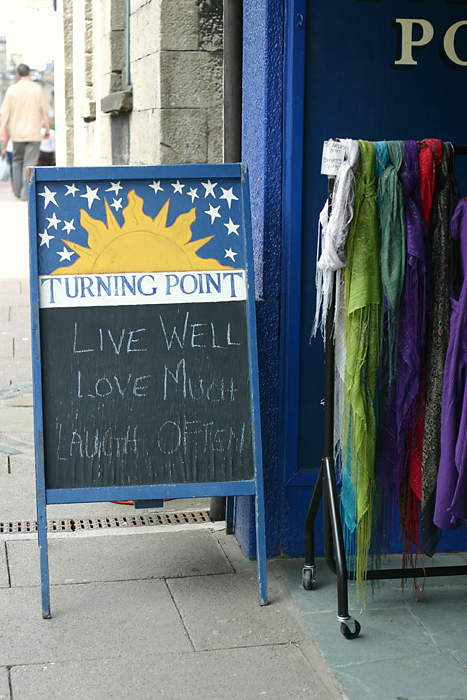 PO
TURNING POINT
LIVE WELL
LOVE MUCH
LAUGH OFTEN